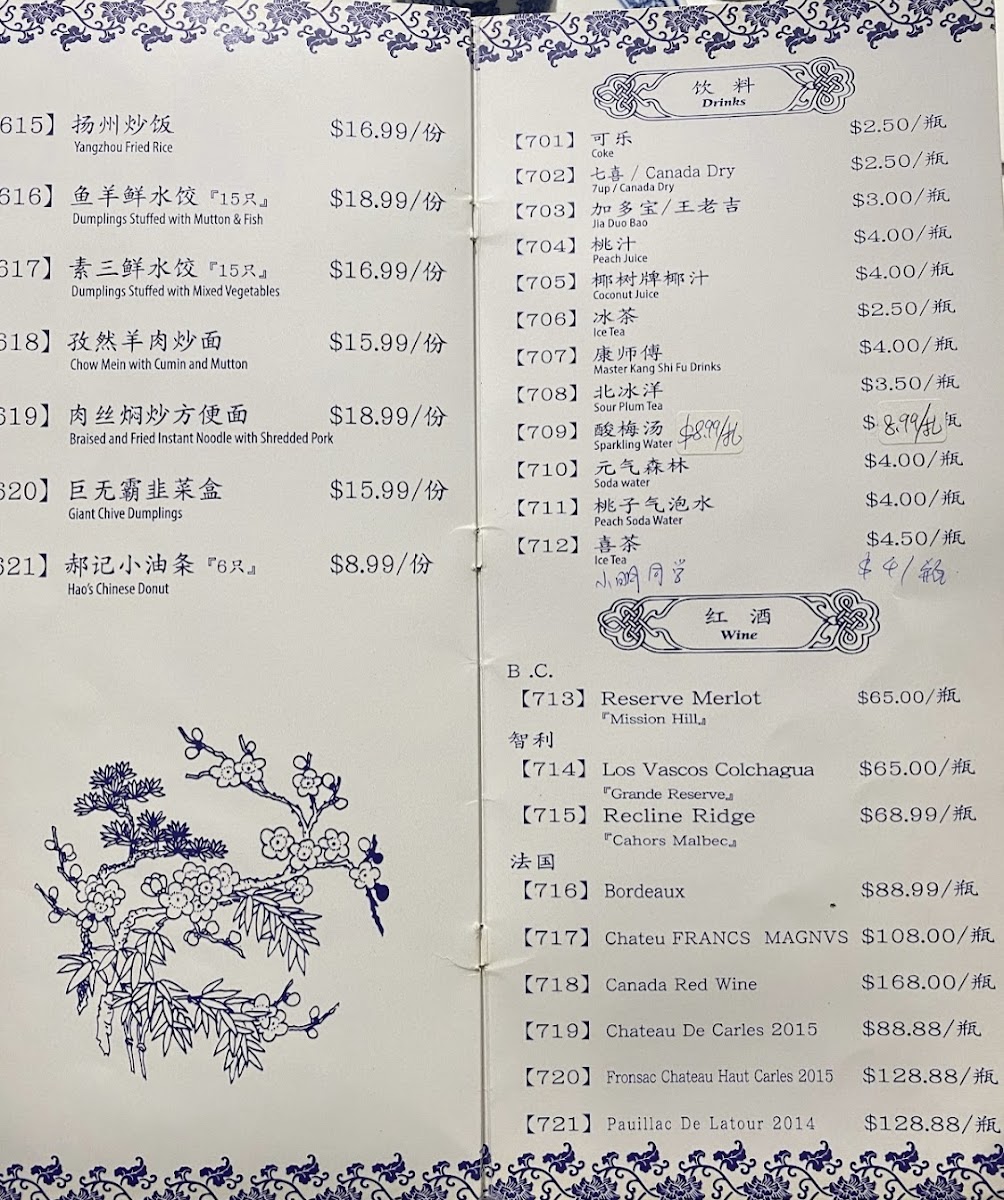 615】 扬州炒饭 $16.99/份
Yangzhou Fried Rice
616】 鱼羊鲜水饺『15只』 $18.99/份
Dumplings Stuffed with Mutton & Fish
617】 素三鲜水饺『15只』 $16.99/份
Dumplings Stuffed with Mixed Vegetables
618】 孜然羊肉炒面 $15.99/份
Chow Mein with Cumin and Mutton
619】 肉丝焖炒方便面 $18.99/份
Braised and Fried Instant Noodle with Shredded Pork
620】 巨无霸韭菜盒 $15.99/份
Giant Chive Dumplings
621】 郝记小油条『6只』 $8.99/份
Hao's Chinese Donut
饮料
Drinks
【701】 可乐 $2.50/瓶
Coke
【702】 七喜 / Canada Dry $2.50/瓶
7up / Canada Dry
【703】 加多宝/王老吉 $3.00/瓶
Jia Duo Bao
【704】 桃汁 $4.00/瓶
Peach Juice
【705】 椰树牌椰汁 $4.00/瓶
Coconut Juice
【706】 冰茶 $2.50/瓶
Ice Tea
【707】 康师傅 $4.00/瓶
Master Kang Shi Fu Drinks
【708】 北冰洋 $3.50/瓶
Sour Plum Tea
【709】 酸梅汤 $8.99/扎 $ 8.99/扎 瓶
Sparkling Water
【710】 元气森林 $4.00/瓶
Soda water
【711】 桃子气泡水 $4.00/瓶
Peach Soda Water
【712】 喜茶 $4.50/瓶
Ice Tea
小明同学 $4/瓶
红酒
Wine
B .C.
【713】 Reserve Merlot $65.00/瓶
『Mission Hill』
智利
【714】 Los Vascos Colchagua $65.00/瓶
『Grande Reserve』
【715】 Recline Ridge $68.99/瓶
『Cahors Malbec』
法国
【716】 Bordeaux $88.99/瓶
【717】 Chateu FRANCS MAGNVS $108.00/瓶
【718】 Canada Red Wine $168.00/瓶
【719】 Chateau De Carles 2015 $88.88/瓶
【720】 Fronsac Chateau Haut Carles 2015 $128.88/瓶
【721】 Pauillac De Latour 2014 $128.88/瓶